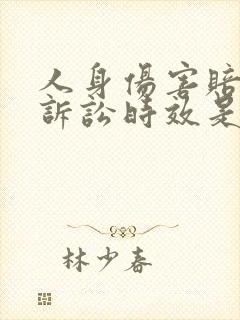 人身傷害賠
訴訟時效是
林少春